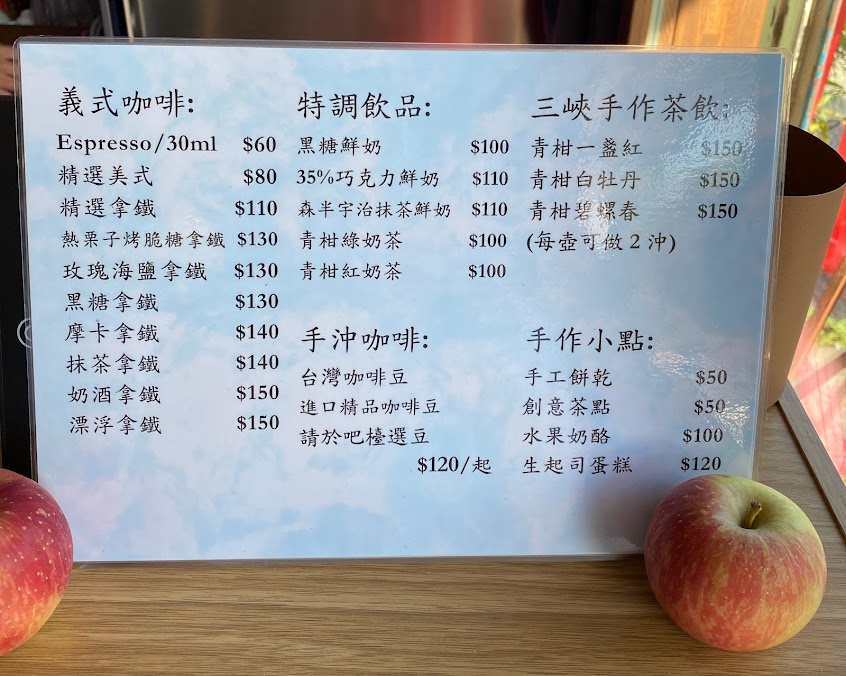 義式咖啡:
Espresso/30ml $60
精選美式 $80
精選拿鐵 $110
熱栗子烤脆糖拿鐵 $130
玫瑰海鹽拿鐵 $130
黑糖拿鐵 $130
摩卡拿鐵 $140
抹茶拿鐵 $140
奶酒拿鐵 $150
漂浮拿鐵 $150
特調飲品:
黑糖鮮奶 $100
35%巧克力鮮奶 $110
森半宇治抹茶鮮奶 $110
青柑綠奶茶 $100
青柑紅奶茶 $100
手沖咖啡:
台灣咖啡豆
進口精品咖啡豆
請於吧檯選豆
$120/起
三峽手作茶飲:
青柑一盞紅 $150
青柑白牡丹 $150
青柑碧螺春 $150
(每壺可做2沖)
手作小點:
手工餅乾 $50
創意茶點 $50
水果奶酪 $100
生起司蛋糕 $120